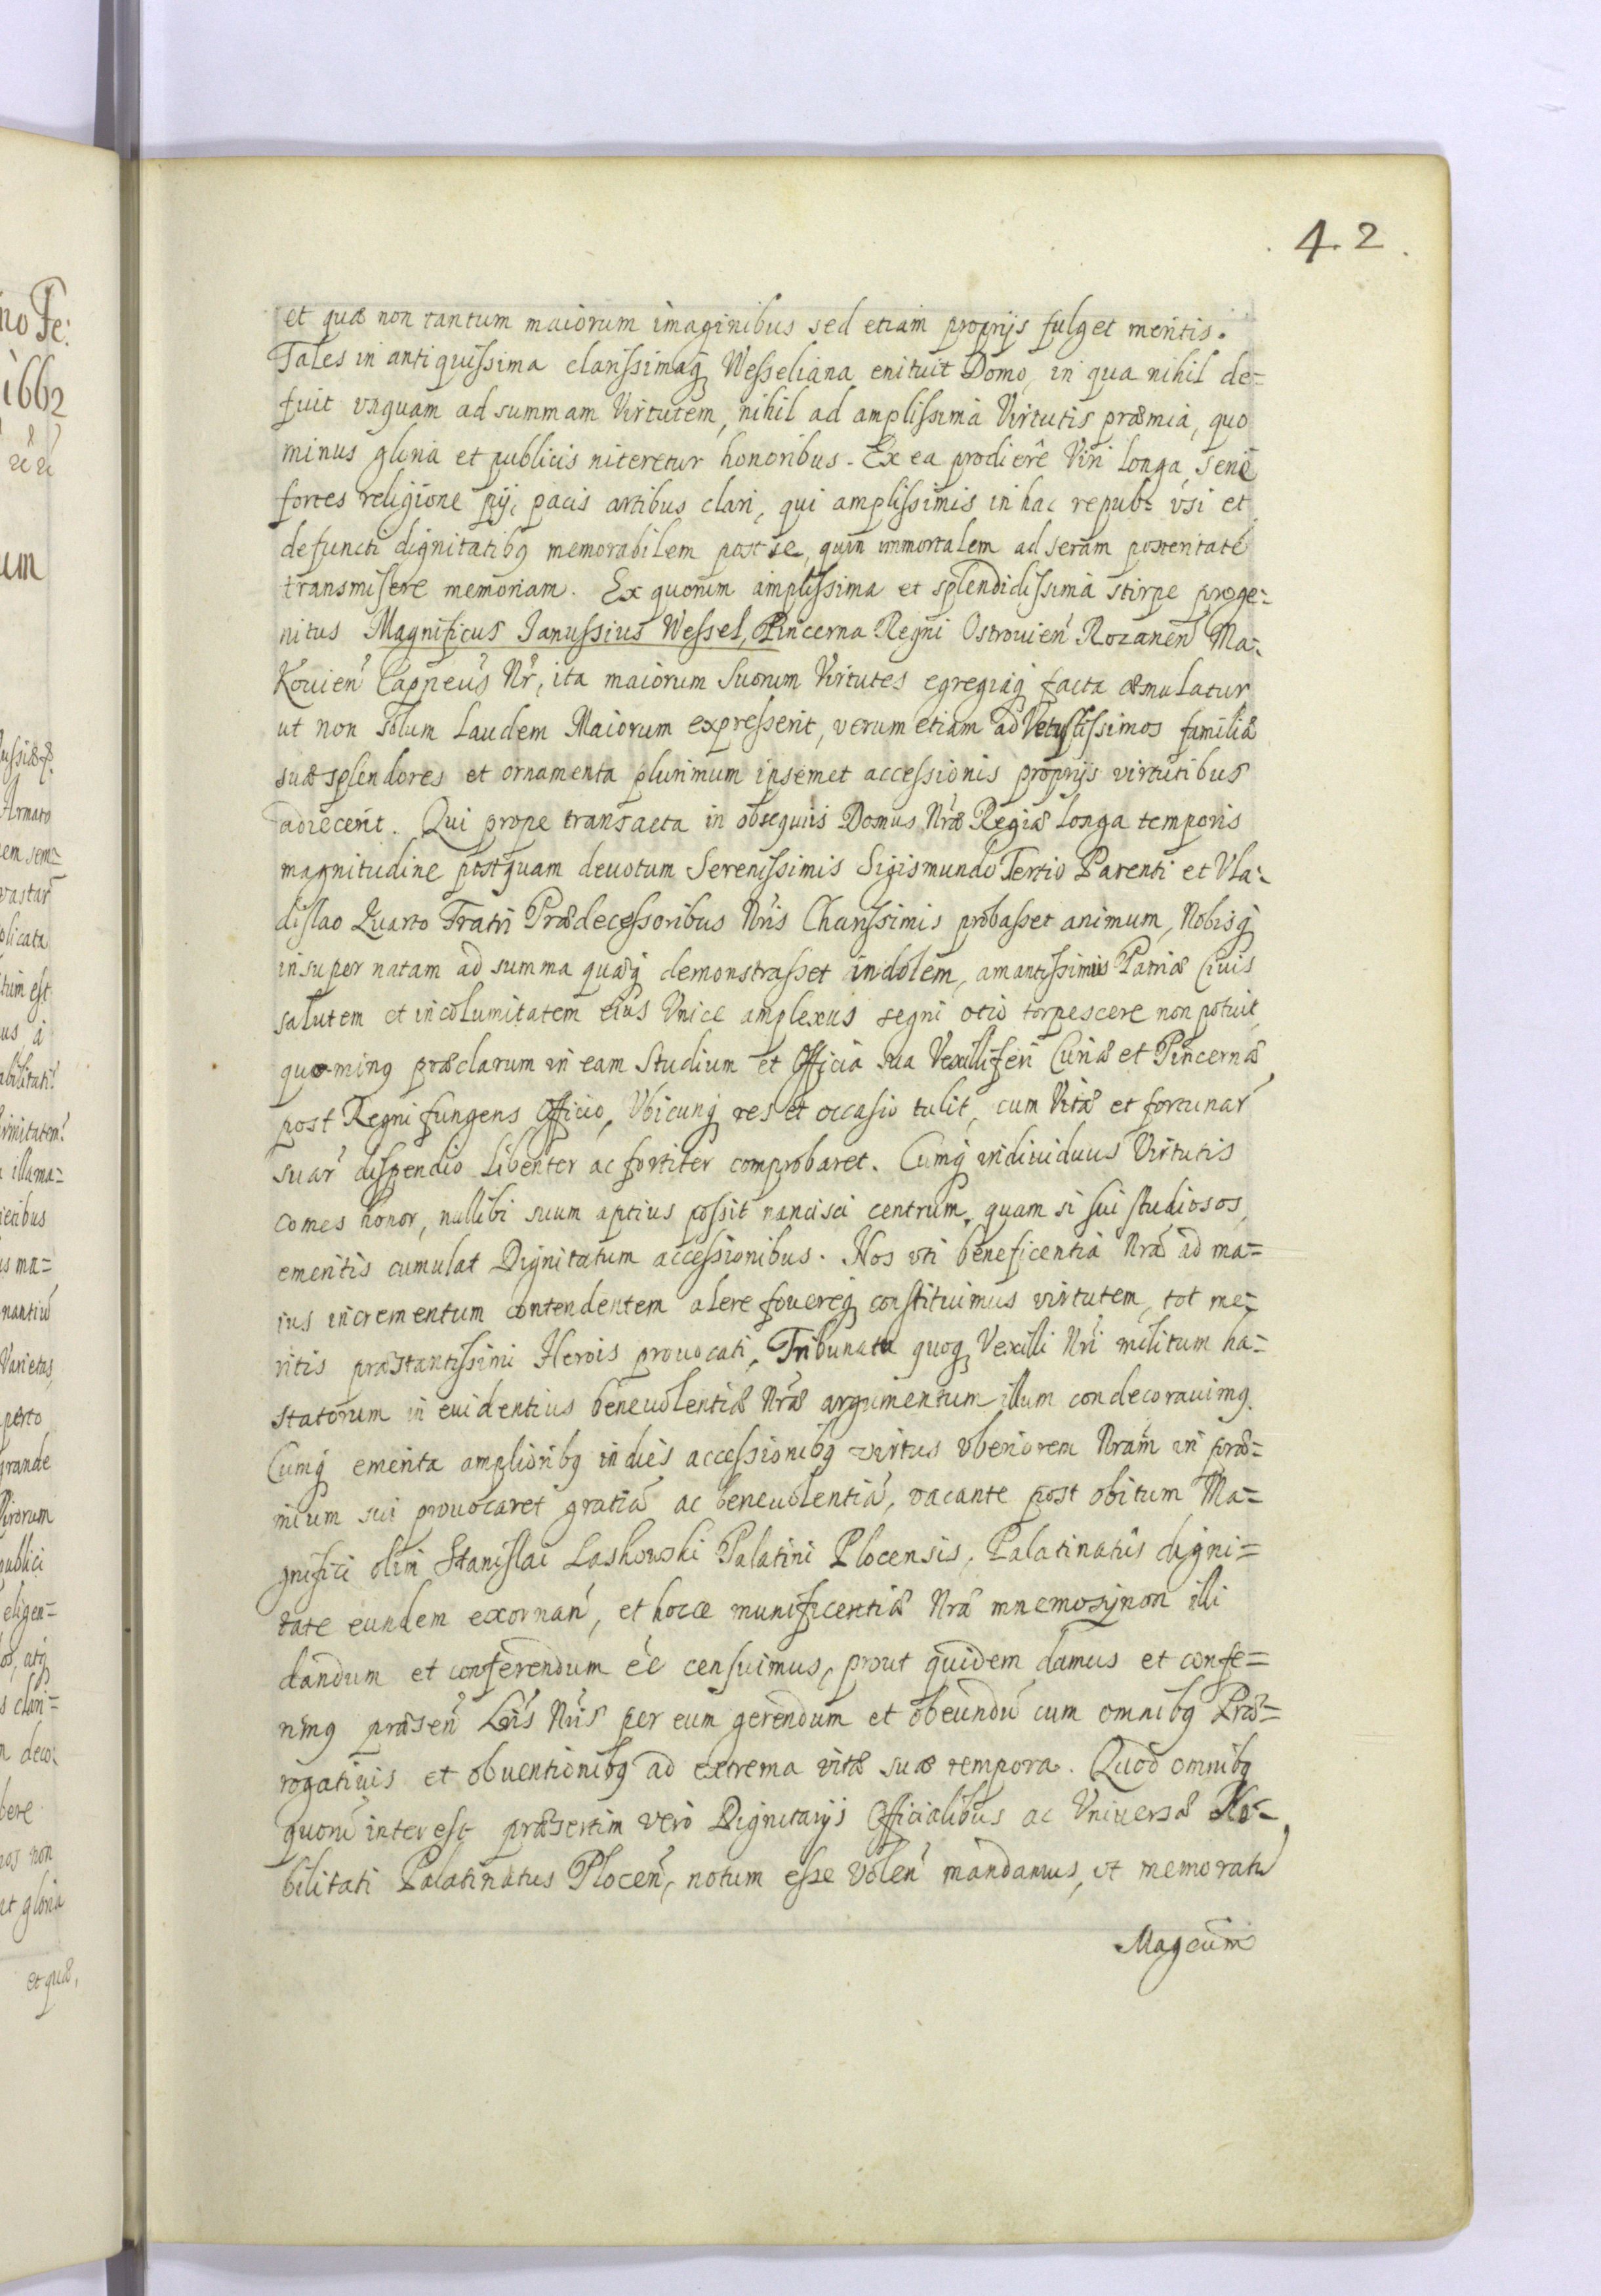 42
et quæ non tantum maiorum imaginibus sed etiam proprijs fulget meritis.
Tales in antiquissima clarissimaq Wesseliana enituit Domo, in qua nihil de=
fuit vnquam ad summam Virtutem, nihil ad amplissima Virtutis præmia, quo
minus gloria et publicis niteretur honoribus. Ex ea prodierê Viri longa serie
fortes religione pij, pacis artibus clari, qui amplissimis in hac repub: vsi et
defuncti dignitatibq memorabilem post se, quin immortalem ad seram posteritatē
transmisere memoriam. Ex quorum amplissima et splendidissima stirpe proge=
nitus Magnificus Janussius Wessel, Pincerna Regni Ostrouien Rozanen Ma=
Kouien Cappneus Nr, ita maiorum Suorum Virtutes egregiaq facta æmulatur
ut non solum laudem Maiorum expresserit, verum etiam ad Vetustissimos familiæ
suæ splendores et ornamenta plurimum insemet accessionis proprijs virtutibus
adiecerit. Qui prope transacta in obsequiis Domus Nræ Regiæ longa temporis
magnitudine postquam deuotum Serenissimis Sigismundo Tertio Parenti et Vla=
dislao Quarto Fratri Prædecessoribus Nris Charissimis probasset animum, Nobisq
insuper natam ad summa quæq demonstrasset indolem, amantissimus Patriæ Ciuis
salutem et incolumitatem eius Vnice amplexus segni otio torpescere non potuit,
quo minq præclarum in eam Studium et Officia sua Vexilliferi Curiæ et Pincernæ
post Regni fungens Officio, Vbicunq res et occasio tulit, cum Vitæ et fortunar
suar dispendio libenter ac fortiter comprobaret. Cumq indiuiduus Virtutis
comes honor, nullibi suum aptius possit nancisci centrum, quam si sui studiosos,
emeritis cumulat Dignitatum accessionibus. Nos vti beneficentia Nra ad ma=
ius incrementum contendentem alere fouereq constituimus virtutem, tot me=
ritis præstantissimi Herois prouocati, Tribunatu quoq Vexilli Nri militum ha=
statorum in euidentius beneuolentiæ Nræ argumentum illum condecorauimq.
Cumq emerita amplioribq indies accessionibq virtus vberiorem Nram in præ=
mium sui prouocaret gratiā ac beneuolentiā, vacante post obitum Ma=
gnifici olim Stanislai Laskowski Palatini Plocensis, Palatinatûs digni=
tate eundem exornan, et hocce munificentiæ Nræ mnemosynon illi
dandum et conferendum ee censuimus, prout quidem damus et confe=
rimq præsen Lris Nris per eum gerendum et obeundū cum omnibq Præ=
rogatiuis et obuentionibq ad extrema vitæ suæ tempora. Quod omnibq
quorū interest præsertim vero Dignitarijs Officialibus ac Vniuersæ No=
bilitati Palatinatus Plocen, notum esse Volen mandamus, vt memoratū
Magcum